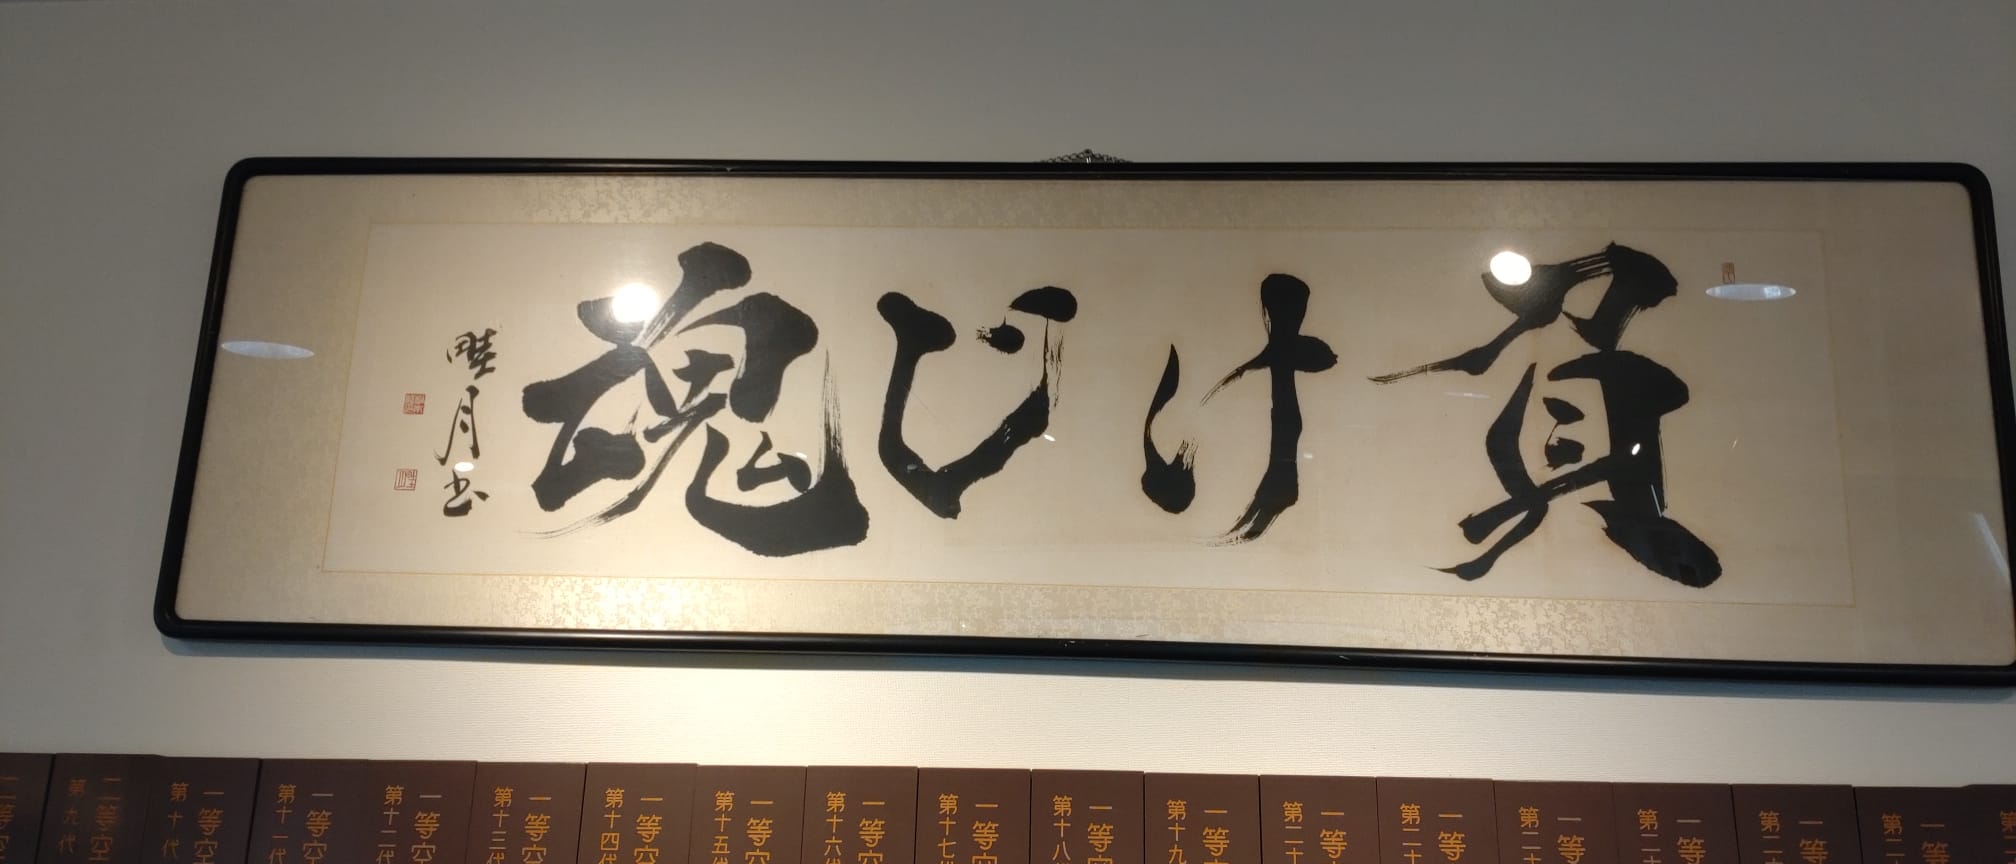 負けじ魂
畦月書
二等空
第九代
一等空
第十代
一等空
第十一代
一等空
第十二代
一等空
第十三代
一等空
第十四代
一等空
第十五代
一等空
第十六代
一等空
第十七代
一等空
第十八
一等空
第十九
一等
第二十
一等
第二十
一等
第二十
一等
第二十
一等
第二十
一等
第二